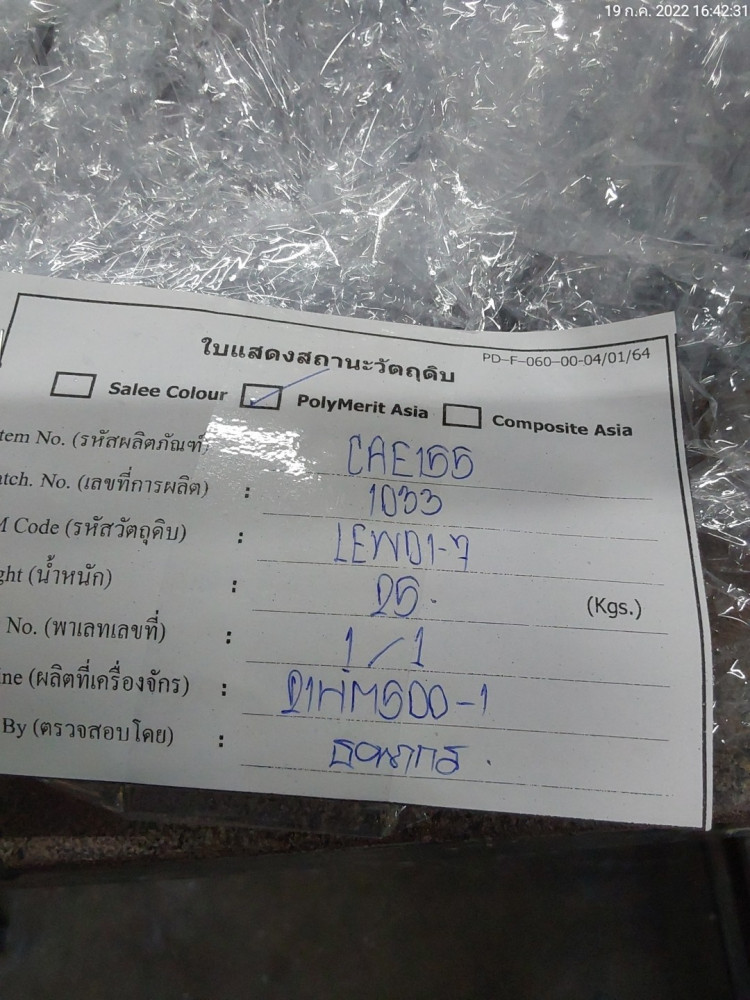 19 ก.ค. 2022 16:42:31
ใบแสดงสถานะวัตถุดิบ PD-F-060-00-04/01/64
Salee Colour PolyMerit Asia Composite Asia
tem No. (รหัสผลิตภัณฑ์) CAE155
atch. No. (เลขที่การผลิต) : 1033
M Code (รหัสวัตถุดิบ) : LEWD1-7
ght (น้ำหนัก) : 25 (Kgs.)
No. (พาเลทเลขที่) : 1/1
ine (ผลิตที่เครื่องจักร) : 21HM500-1
By (ตรวจสอบโดย) :